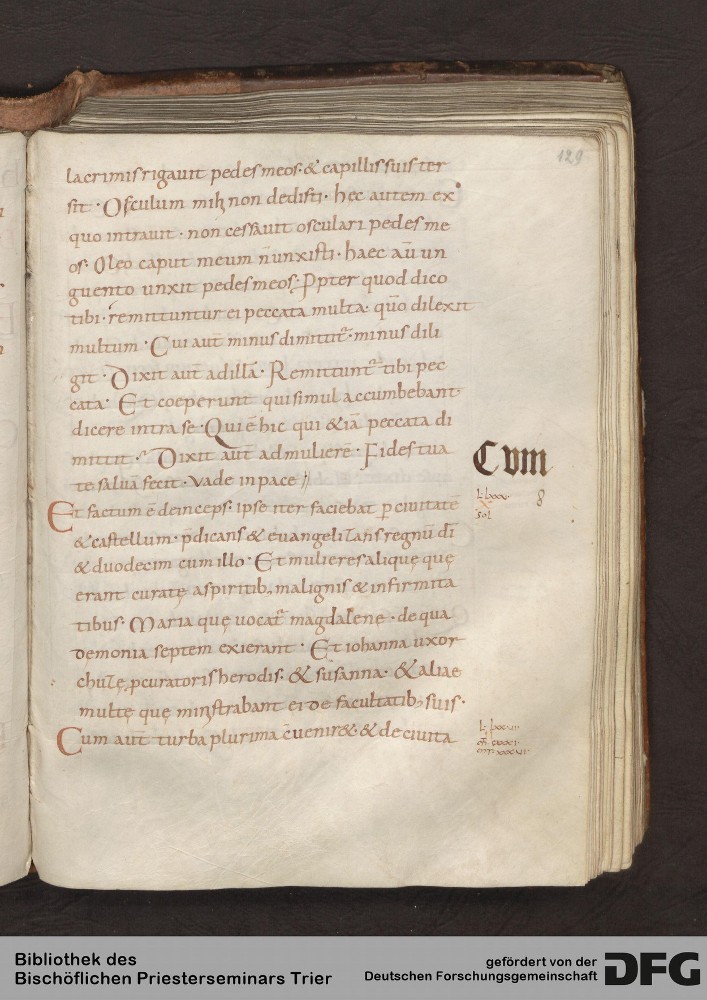 129
lacrimis rigauit pedes meos · & capillis suis ter
sit · Osculum mihi non dedisti · hec autem ex
quo intrauit · non cessauit osculari pedes me
os · Oleo caput meum n̄ unxisti · haec aū un
guento unxit pedes meos · Ppter quod dico
tibi · remittuntur ei peccata multa · qūo dilexit
multum · Cui aūt minus dimittit᷑ · minus dili
git · Dixit aūt ad illā · Remittunt᷑ tibi pec
cata · Et coeperunt qui simul accumbebant
dicere intra se · Qui ē hic qui & iā peccata di
mittit · Dixit aūt ad mulierē · Fides tua
te saluā fecit · Vade in pace
Cum
Et factum ē deinceps · ipse iter faciebat p ciuitatē
& castellum · p̄dicans & euangelizans regnū dī
& duodecim cum illo · Et mulieres aliquę quę
erant curatę a spiritib; malignis & infirmita
tibus · Maria quę uocat᷑ magdalene · de qua
demonia septem exierant · Et iohanna uxor
chuzę pcuratoris herodis · & susanna · & aliae
multę quę ministrabant ei de facultatib; suis ·
Cum aūt turba plurima c̄uenir& · & de ciuita
Bibliothek des
Bischöflichen Priesterseminars Trier
gefördert von der
Deutschen Forschungsgemeinschaft
DFG